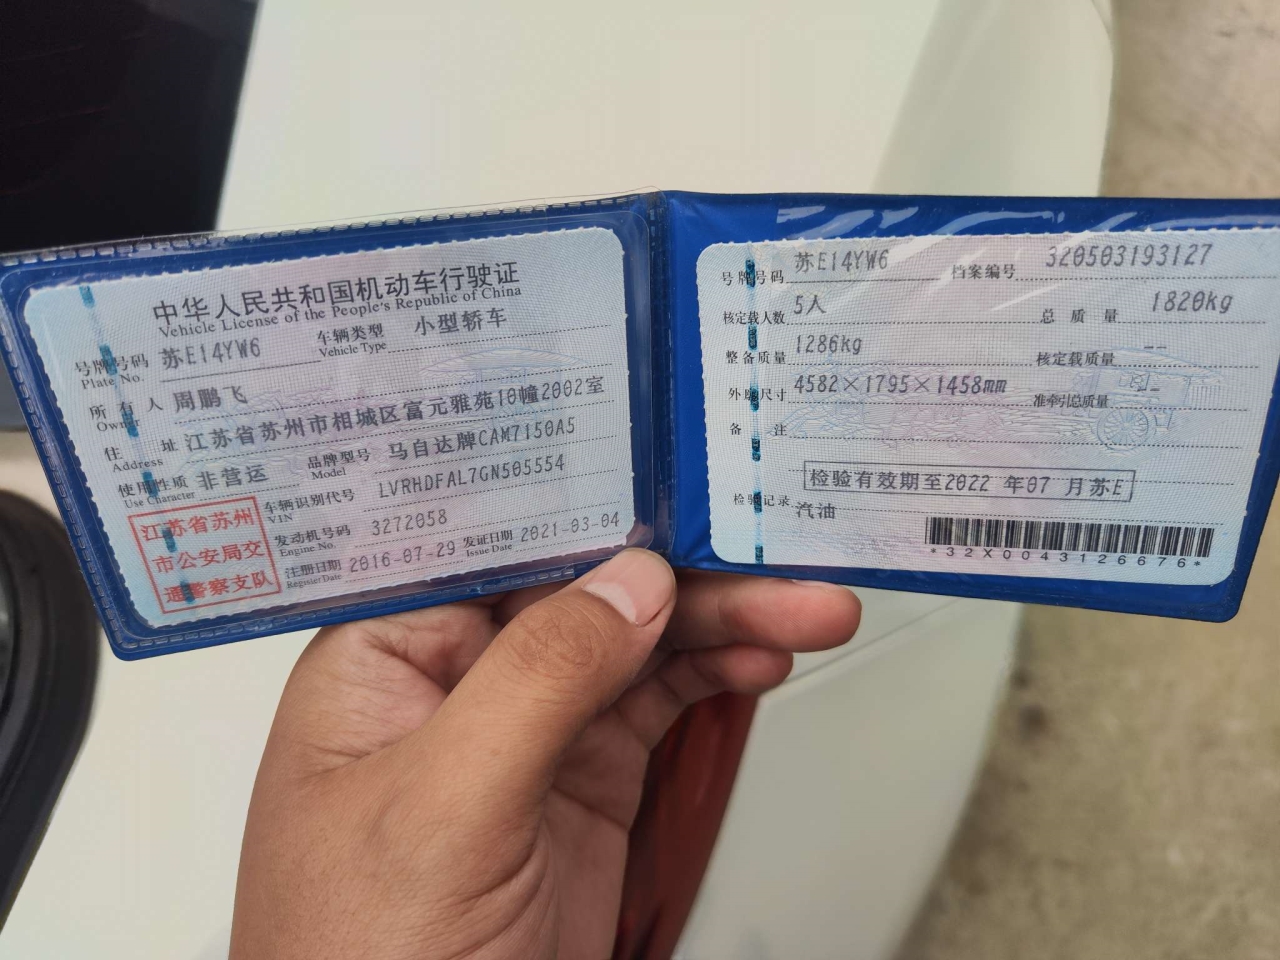 中华人民共和国机动车行驶证
Vehicle License of the People's Republic of China
号牌号码 苏E14YW6 车辆类型 小型轿车
Plate No. Vehicle Type
所有人 周鹏飞
Owner
住址 江苏省苏州市相城区富元雅苑10幢2002室
Address
使用性质 非营运 品牌型号 马自达牌CAM7150A5
Use Character Model
江苏省苏州
市公安局交
通警察支队
车辆识别代号 LVRHDFAL7GN505554
VIN
发动机号码 3272058
Engine No.
注册日期 2016-07-29 发证日期 2021-03-04
Register Date Issue Date
号牌号码 苏E14YW6 档案编号 320503193127
核定载人数 5人 总质量 1820kg
整备质量 1286kg 核定载质量 --
外廓尺寸 4582×1795×1458mm 准牵引总质量 --
备注
检验有效期至2022 年07 月苏E
检验记录 汽油
*32X0043126676*